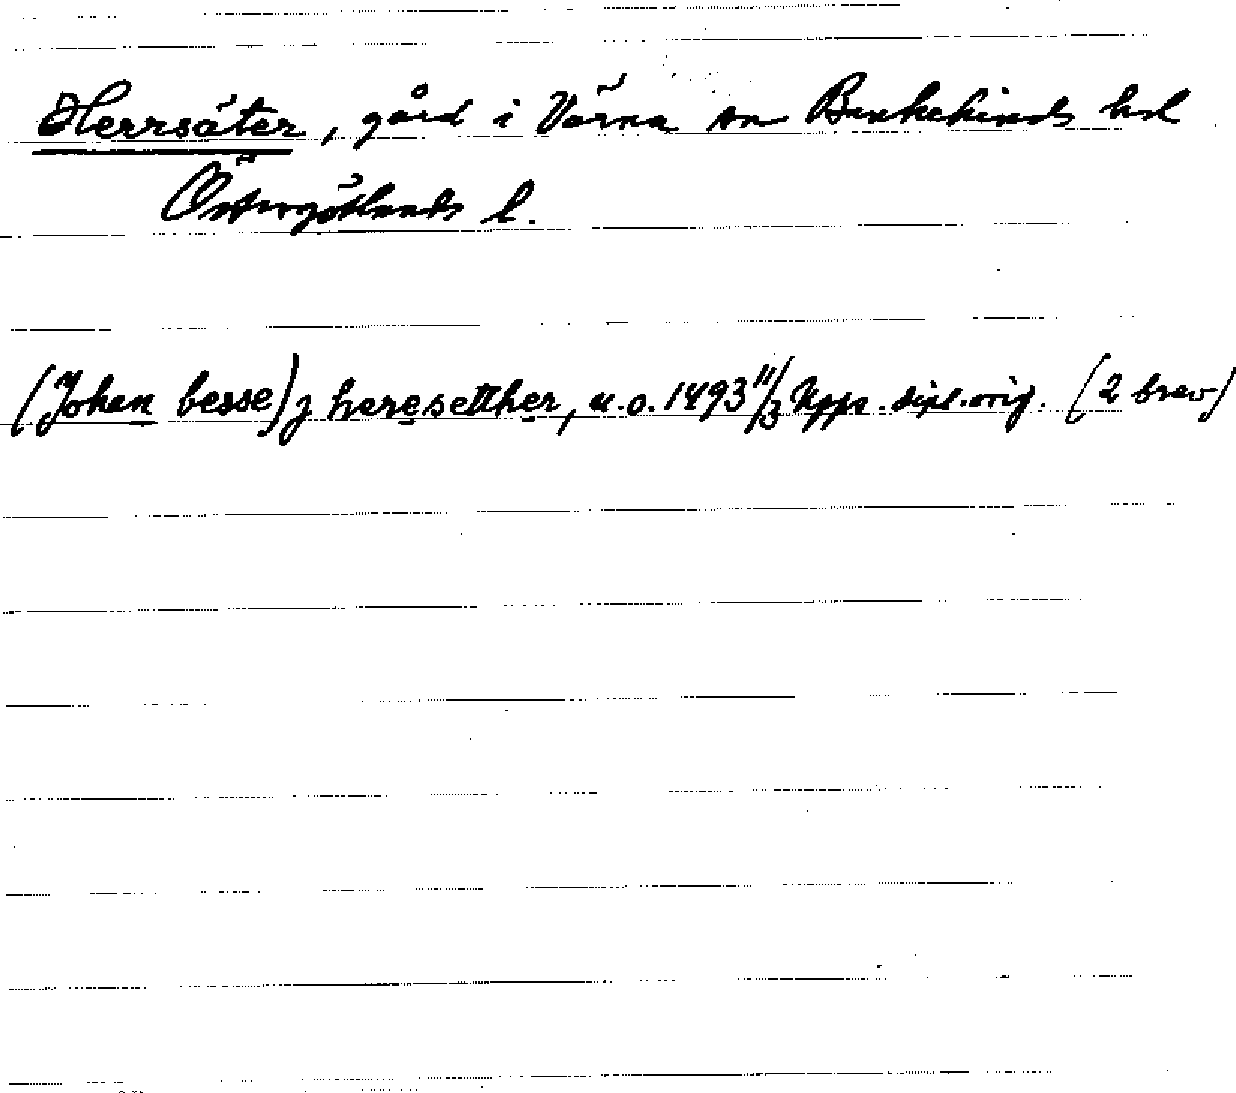 Herrsäter, gård i Värna sn Bankekinds hd
Östergötlands l.
(Johan besse) j heresetther, u.o. 1493 11/3 Upps. dipl. orig. (2 brev)